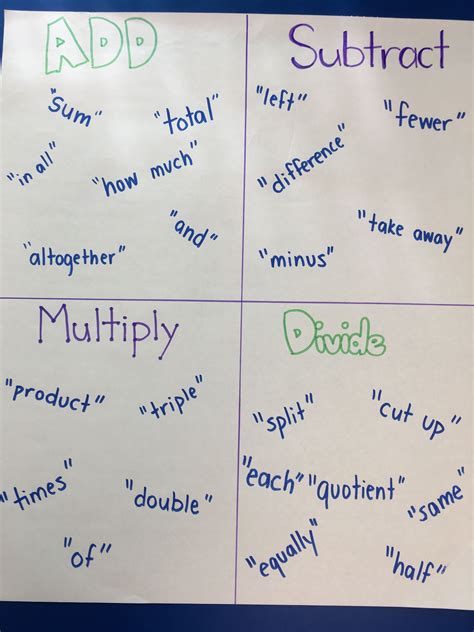 ADD
"sum"
"total"
"in all"
"how much"
"and"
"altogether"
Subtract
"left"
"fewer"
"difference"
"take away"
"minus"
Multiply
"product"
"triple"
"times"
"double"
"of"
Divide
"split"
"cut up"
"each" "quotient"
"same"
"equally"
"half"